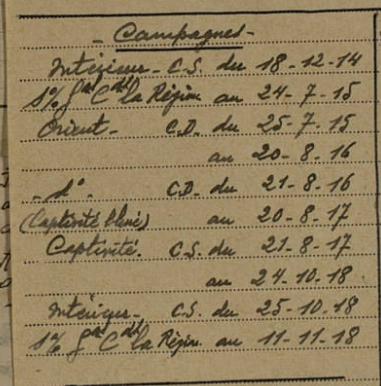 - Campagnes -
Intérieur - C.S. du 18-12-14
S/c Gal Ct la Région au 24-7-15
Orient - C.D. du 25-7-15
au 20-8-16
- do - C.D. du 21-8-16
(Captivité blessé) au 20-8-17
Captivité. C.S. du 21-8-17
au 24-10-18
Intérieur - C.S. du 25-10-18
la Région au 11-11-18